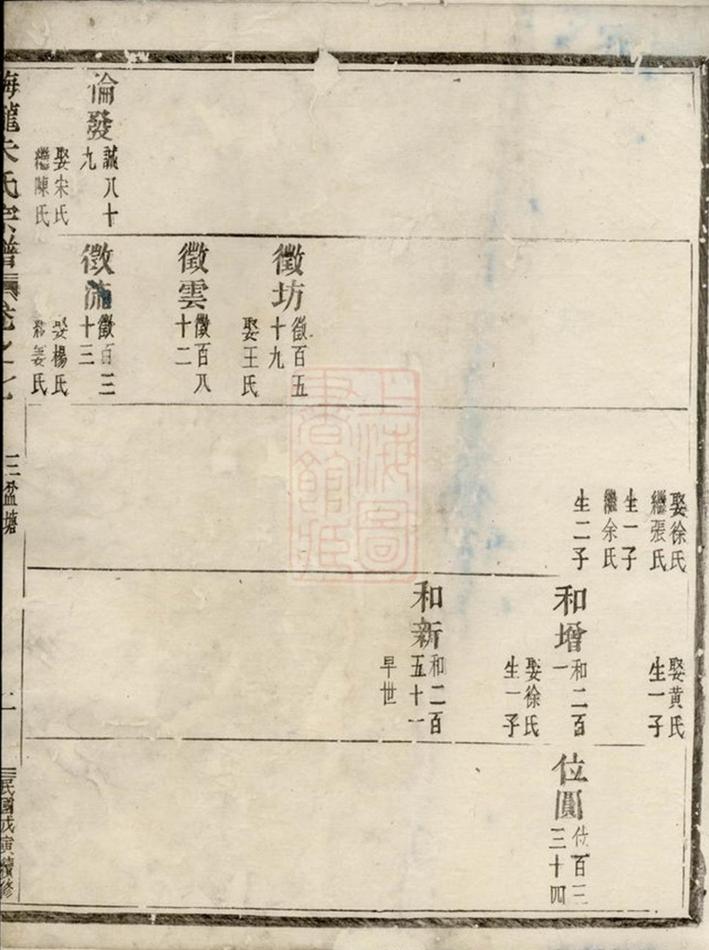 倫發
誠八十
九
娶宋氏
繼陳氏
徵坊
徵百五
十九
娶王氏
徵雲
徵百八
十二
徵流
徵百三
十三
娶楊氏
繼姜氏
娶徐氏
繼張氏
生一子
繼余氏
生二子
娶黃氏
生一子
和增
和二百
一
娶徐氏
生一子
和新
和二百
五十一
早世
位圓
位百三
三十四
上海圖
書館藏
梅龍朱氏宗譜
卷之七
三盆塘
民國戊寅續修